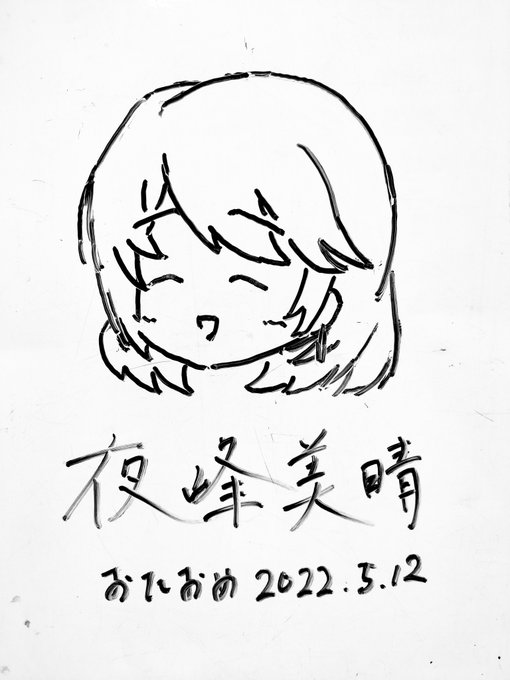 夜峰美晴
おたおめ 2022.5.12